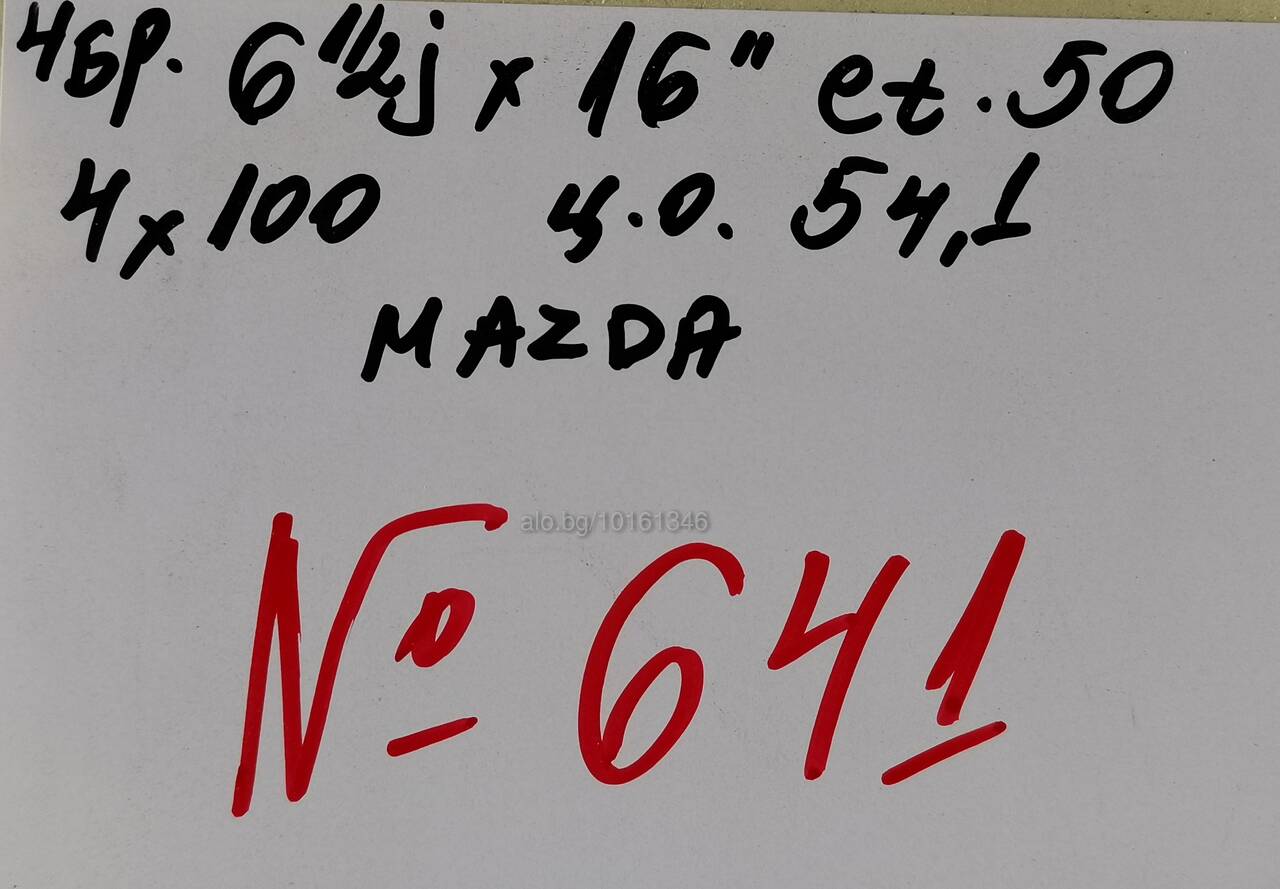 4бр. 6 1/2j x 16" et. 50
4x100 ц.о. 54,1
MAZDA
alo.bg/10161346
№ 641